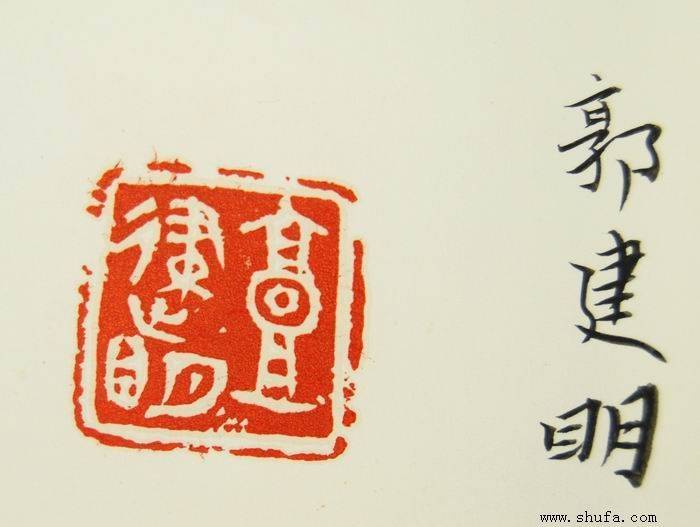 郭建明
郭
建明
www.shufa.com